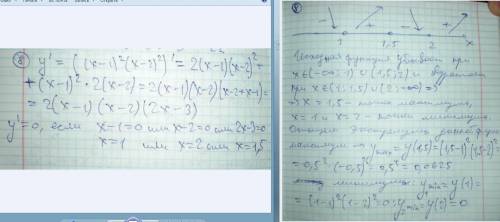 ⑧ y' = ((x-1)²(x-2)²)' = 2(x-1)(x-2)² +
+ (x-1)²·2(x-2) = 2(x-1)(x-2)(x-2+x-1) =
= 2(x-1)(x-2)(2x-3)
y'=0, если x-1=0 или x-2=0 или 2x-3=0
x=1 или x=2 или x=1,5
⑧
- + - +
1 1,5 2 x
Исходная функция убывает при
x∈(-∞;1)∪(1,5;2) и возрастает
при x∈(1;1,5)∪(2;+∞) ⇒
⇒ x=1,5 - точка максимума,
x=1 и x=2 - точки минимума.
функции
максимум y = y(1,5) = (1,5-1)²(1,5-2)² =
= 0,5²·(-0,5)² = 0,0625
минимумы: y min = y(1) =
= (1-1)²(1-2)² = 0; y min = y(2) = 0